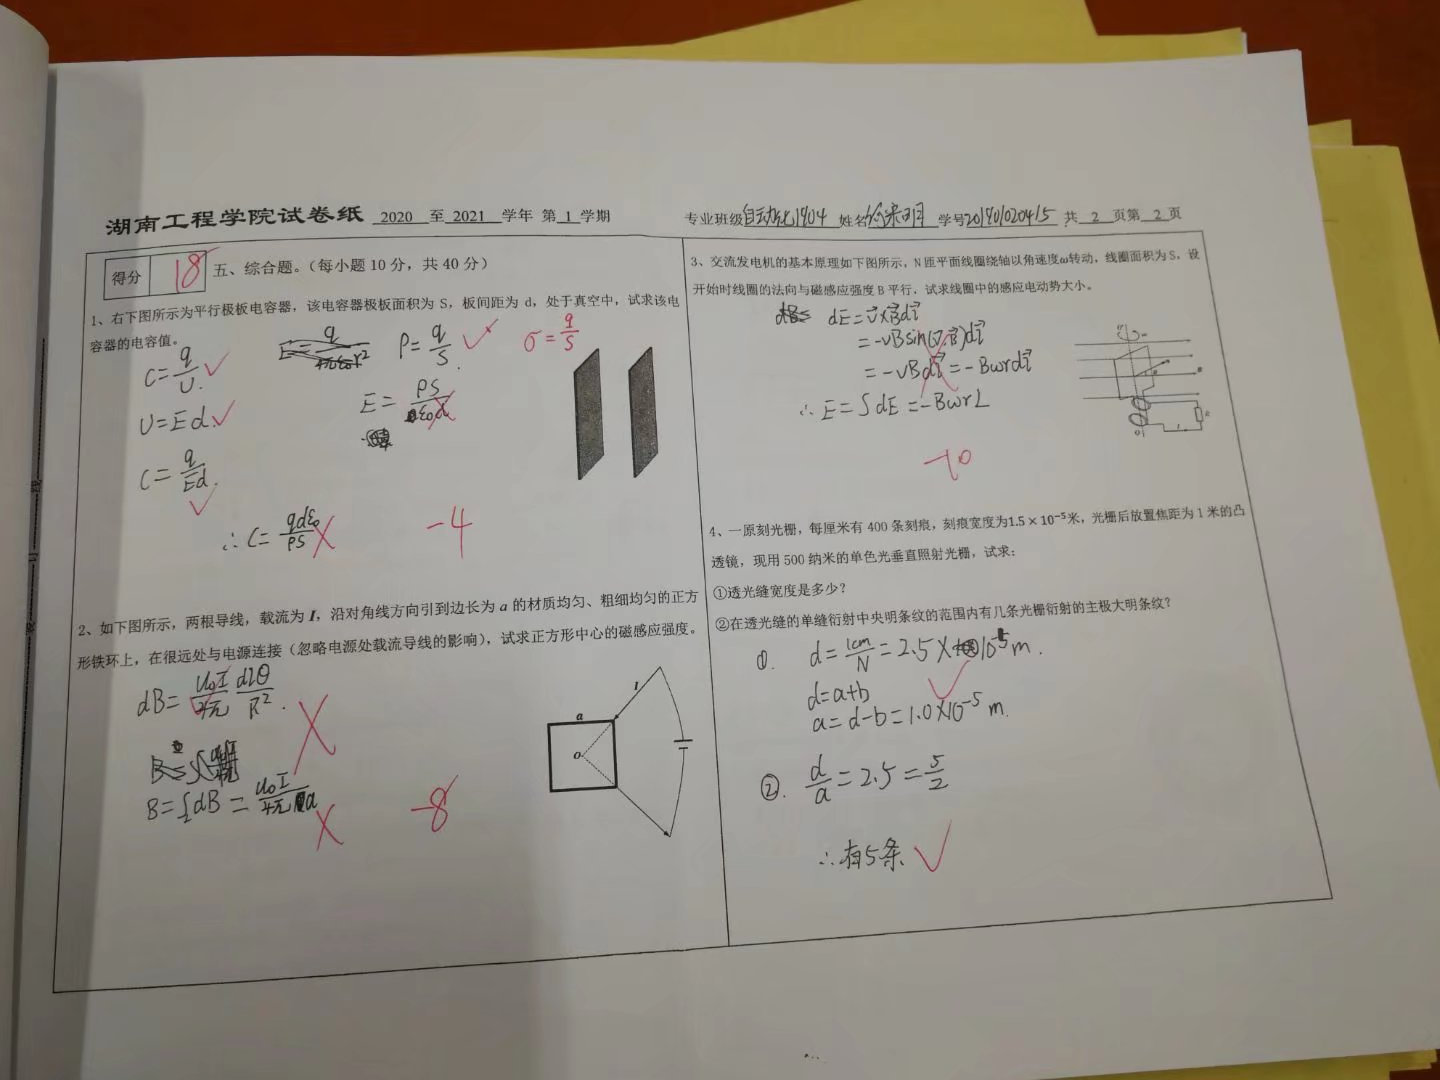 湖南工程学院试卷纸 2020 至 2021 学年 第 1 学期
专业班级自动化1904 姓名 学号201901020415 共 2 页第 2 页
得分 18 五、综合题。（每小题 10 分，共 40 分）
1、右下图所示为平行极板电容器，该电容器极板面积为 S，板间距为 d，处于真空中，试求该电
容器的电容值。
C=q/U.
U=Ed.
C=q/Ed.
ρ=q/S.
σ=q/S
E=ρS/ε₀d
∴C=qdε₀/ρS
-4
2、如下图所示，两根导线，载流为 I，沿对角线方向引到边长为 a 的材质均匀、粗细均匀的正方
形铁环上，在很远处与电源连接（忽略电源处载流导线的影响），试求正方形中心的磁感应强度。
dB=u₀I/4π dlθ/R².
B=∫dB=u₀I/4πa
-8
a
I
o
3、交流发电机的基本原理如下图所示，N 匝平面线圈绕轴以角速度ω转动，线圈面积为 S，设
开始时线圈的法向与磁感应强度 B 平行，试求线圈中的感应电动势大小。
dE=v⃗×B⃗dl⃗
=-vBsin(v⃗,B⃗)dl⃗
=-vBdl⃗=-Bwrdl⃗
∴E=∫dE=-BwrL
-10
4、一原刻光栅，每厘米有 400 条刻痕，刻痕宽度为1.5×10⁻⁵米，光栅后放置焦距为 1 米的凸
透镜，现用 500 纳米的单色光垂直照射光栅，试求：
①透光缝宽度是多少？
②在透光缝的单缝衍射中央明条纹的范围内有几条光栅衍射的主极大明条纹？
①. d=1cm/N=2.5×10⁻⁵m.
d=a+b
a=d-b=1.0×10⁻⁵m.
②. d/a=2.5=5/2
∴有5条